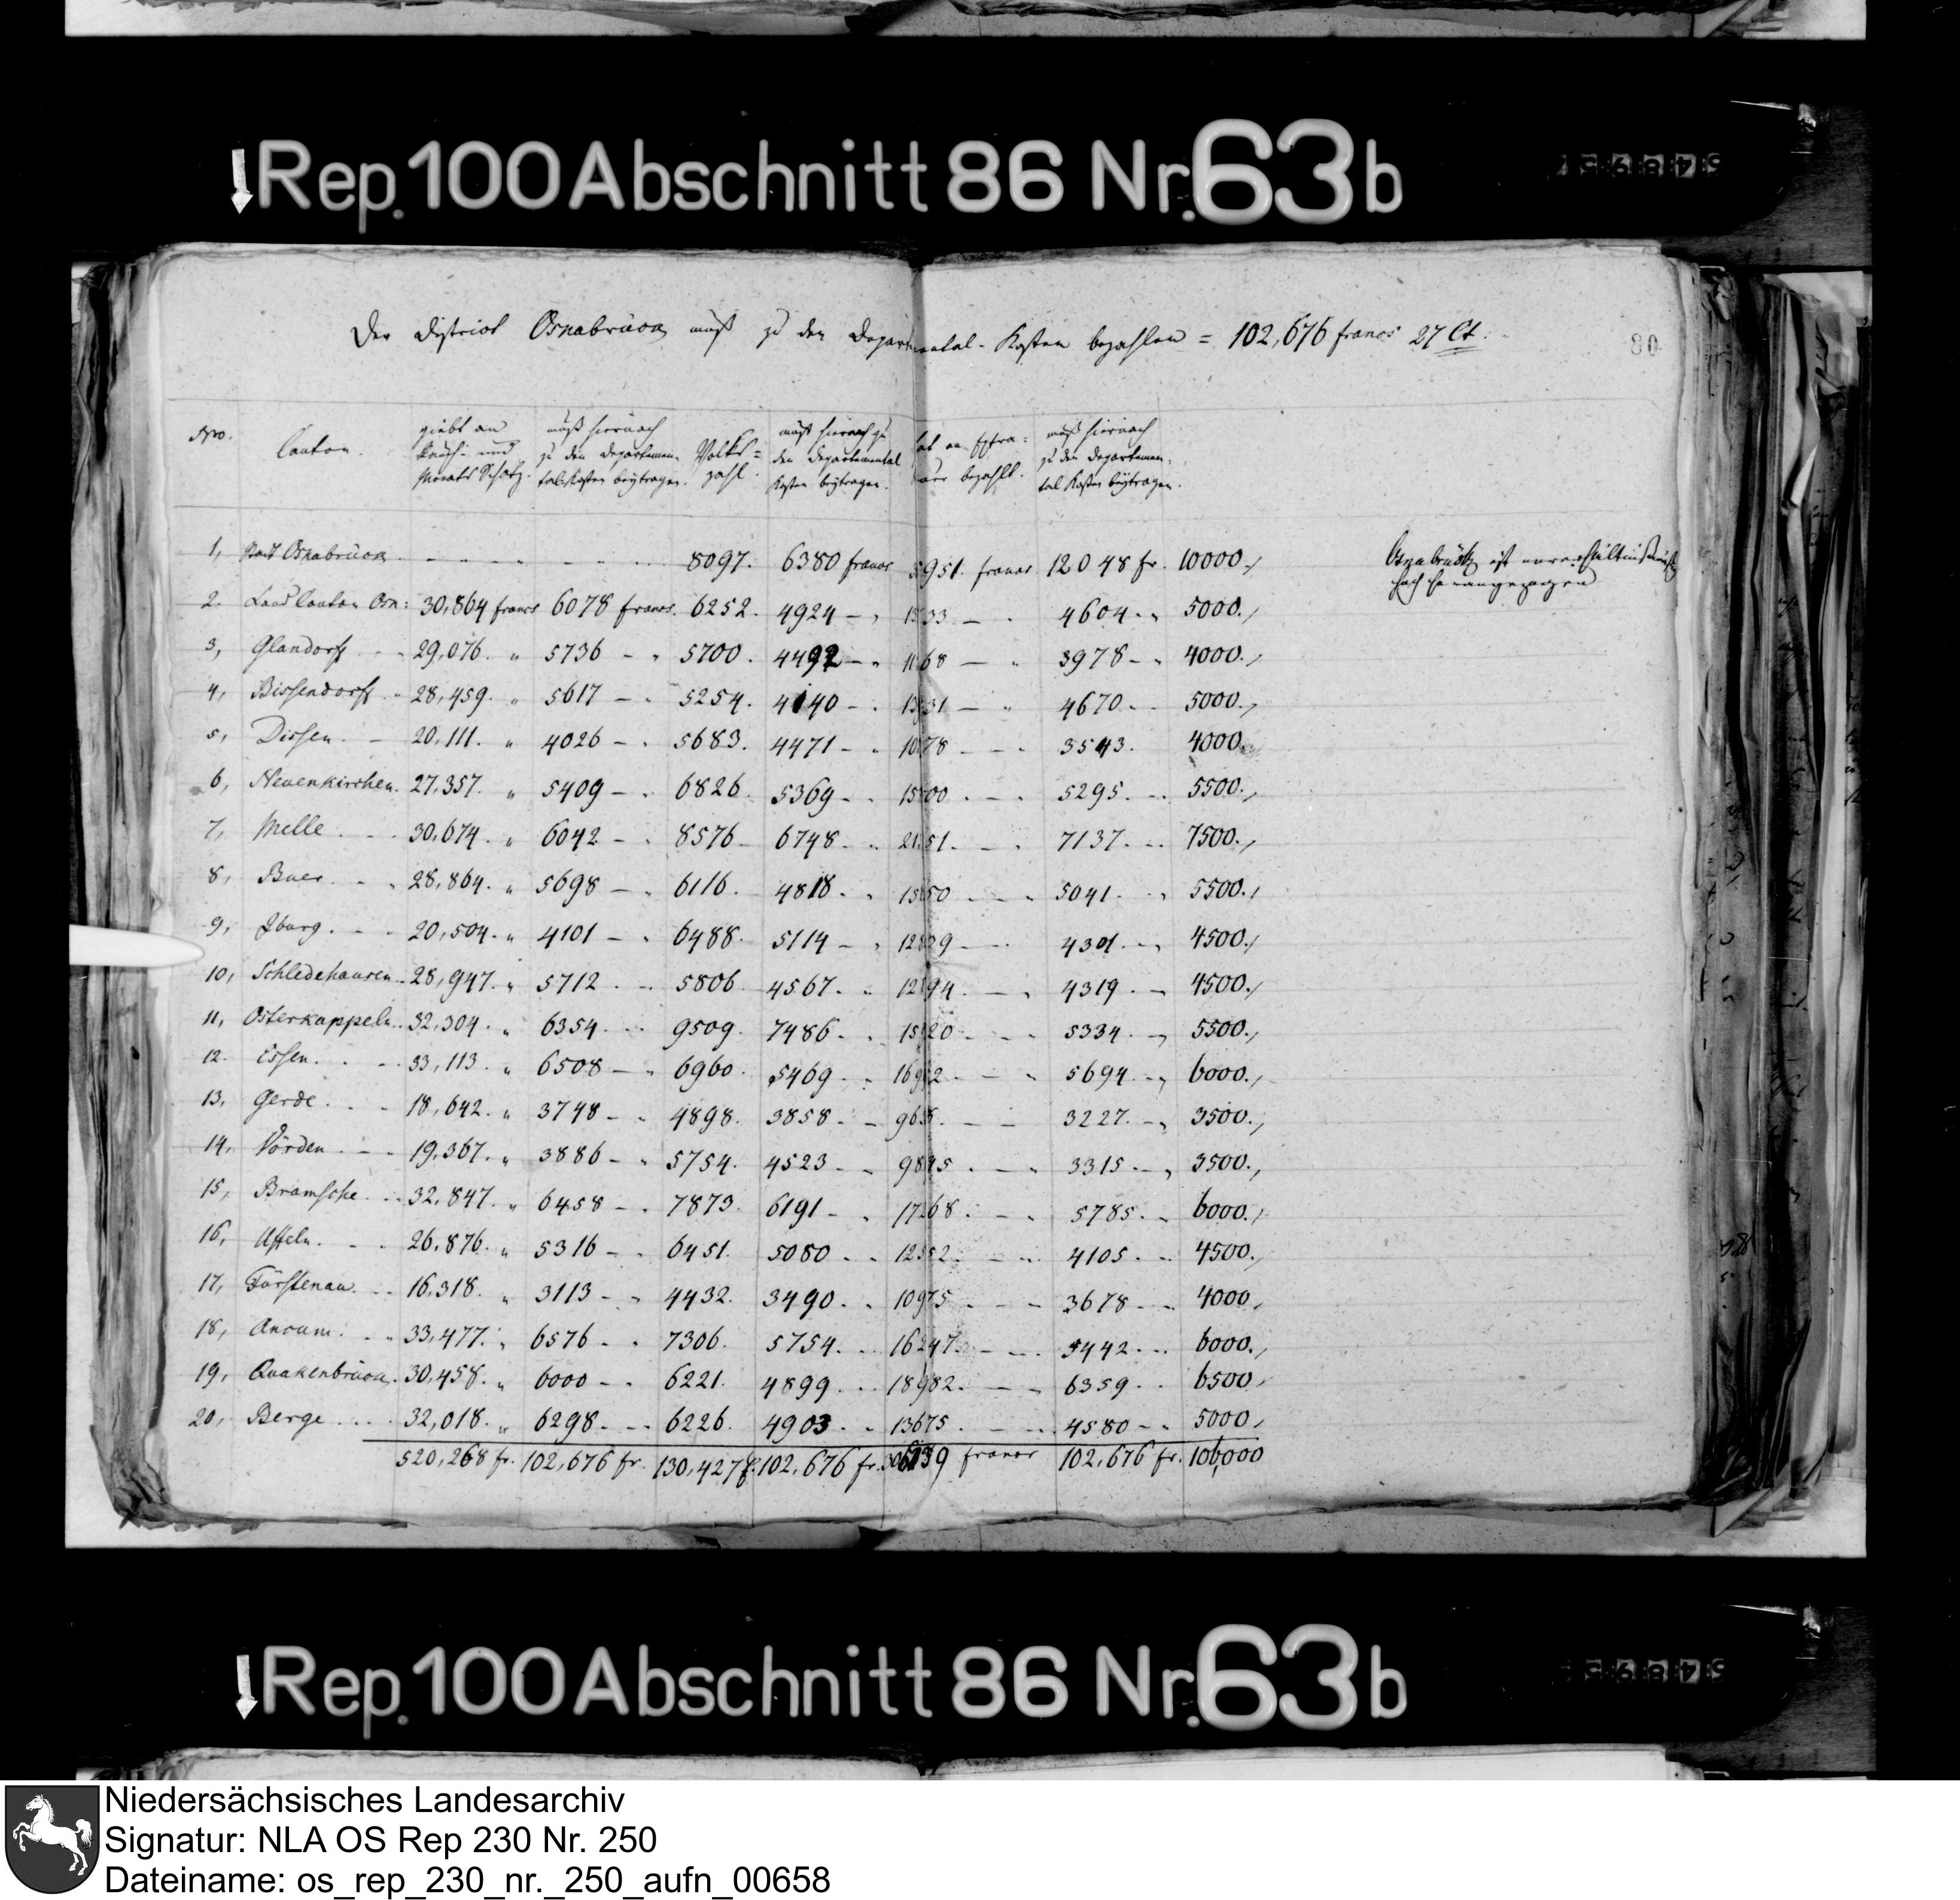 Rep. 100 Abschnitt 86 Nr. 63b
Der District Osnabrück muß zu den Departemental-Kosten bezahlen = 102,676 francs 27 Ct.
80
Nro. Canton. giebt an Rauch- und Monats Schatz. muß hiernach zu den Departemental-Kosten beytragen. Volks=zahl. muß hiernach zu den Departemental Kosten beytragen. bezahlt. muß hiernach zu den Departemental Kosten beytragen.
1, Stadt Osnabrück 8097. 6380 francs 951. francs 12048 fr. 10000.,
2. Land Canton Osn: 30,864 francs 6078 francs. 6252. 4924 4604 5000.,
3, Glandorff 29,076. 5736 5700. 4492 3978 4000.,
4, Bissendorff 28,459. 5617 5254. 4140 4670 5000.,
5, Dissen 20,111. 4026 5683. 4471 3543. 4000.
6, Neuenkirchen. 27,357. 5409 6826 5369 5295. 5500.,
7, Melle 30,674. 6042 8576 6748 7137. 7500.,
8, Buer 28,864. 5698 6116. 4818 5041. 5500.,
9, Iburg. 20,504. 4101 6488. 5114 4301 4500.,
10, Schledehausen 28,947. 5712 5806 4567. 4319 4500.,
11, Osterkappeln 32,304. 6354 9509. 7486 5334 5500.,
12. Essen. 33,113. 6508 6960. 5469 5694 6000.,
13, Gerde 18,642. 3748 4898. 3858 3227. 3500.,
14, Vörden 19,367. 3886 5754. 4523 3315 3500.,
15, Bramsche 32,847. 6458 7873. 6191 5785. 6000.,
16, Uffeln. 26,876. 5316 6451. 5080 4105 4500.
17, Fürstenau 16,318. 3113 4432. 3490 10975 3678 4000,
18, Ancum. 33,477. 6576 7306. 5754. 16247. 5442 6000.,
19, Quakenbrück 30,458. 6000 6221. 4899 18982. 6359 6500,
20, Berge 32,018. 6298 6226. 4903 13675 4580 5000,
520,268 fr. 102,676 fr. 130,427 102,676 fr. francs 102,676 fr. 106,000
Osnabrück ist unverhältnißmäßig
hoch herangezogen
Rep. 100 Abschnitt 86 Nr. 63b
Niedersächsisches Landesarchiv
Signatur: NLA OS Rep 230 Nr. 250
Dateiname: os_rep_230_nr._250_aufn_00658